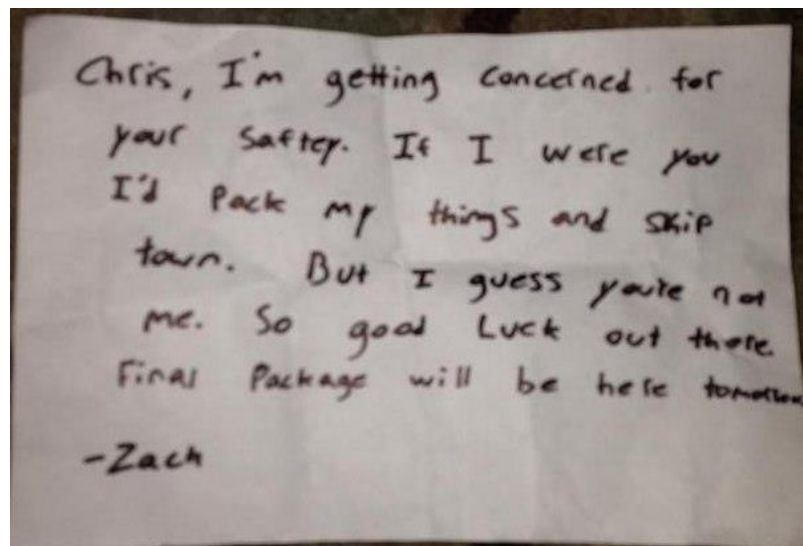 Chris, I'm getting concerned for
your saftey. If I were you
I'd pack my things and skip
town. But I guess you're not
me. So good Luck out there.
Final Package will be here tomorrow
-Zach